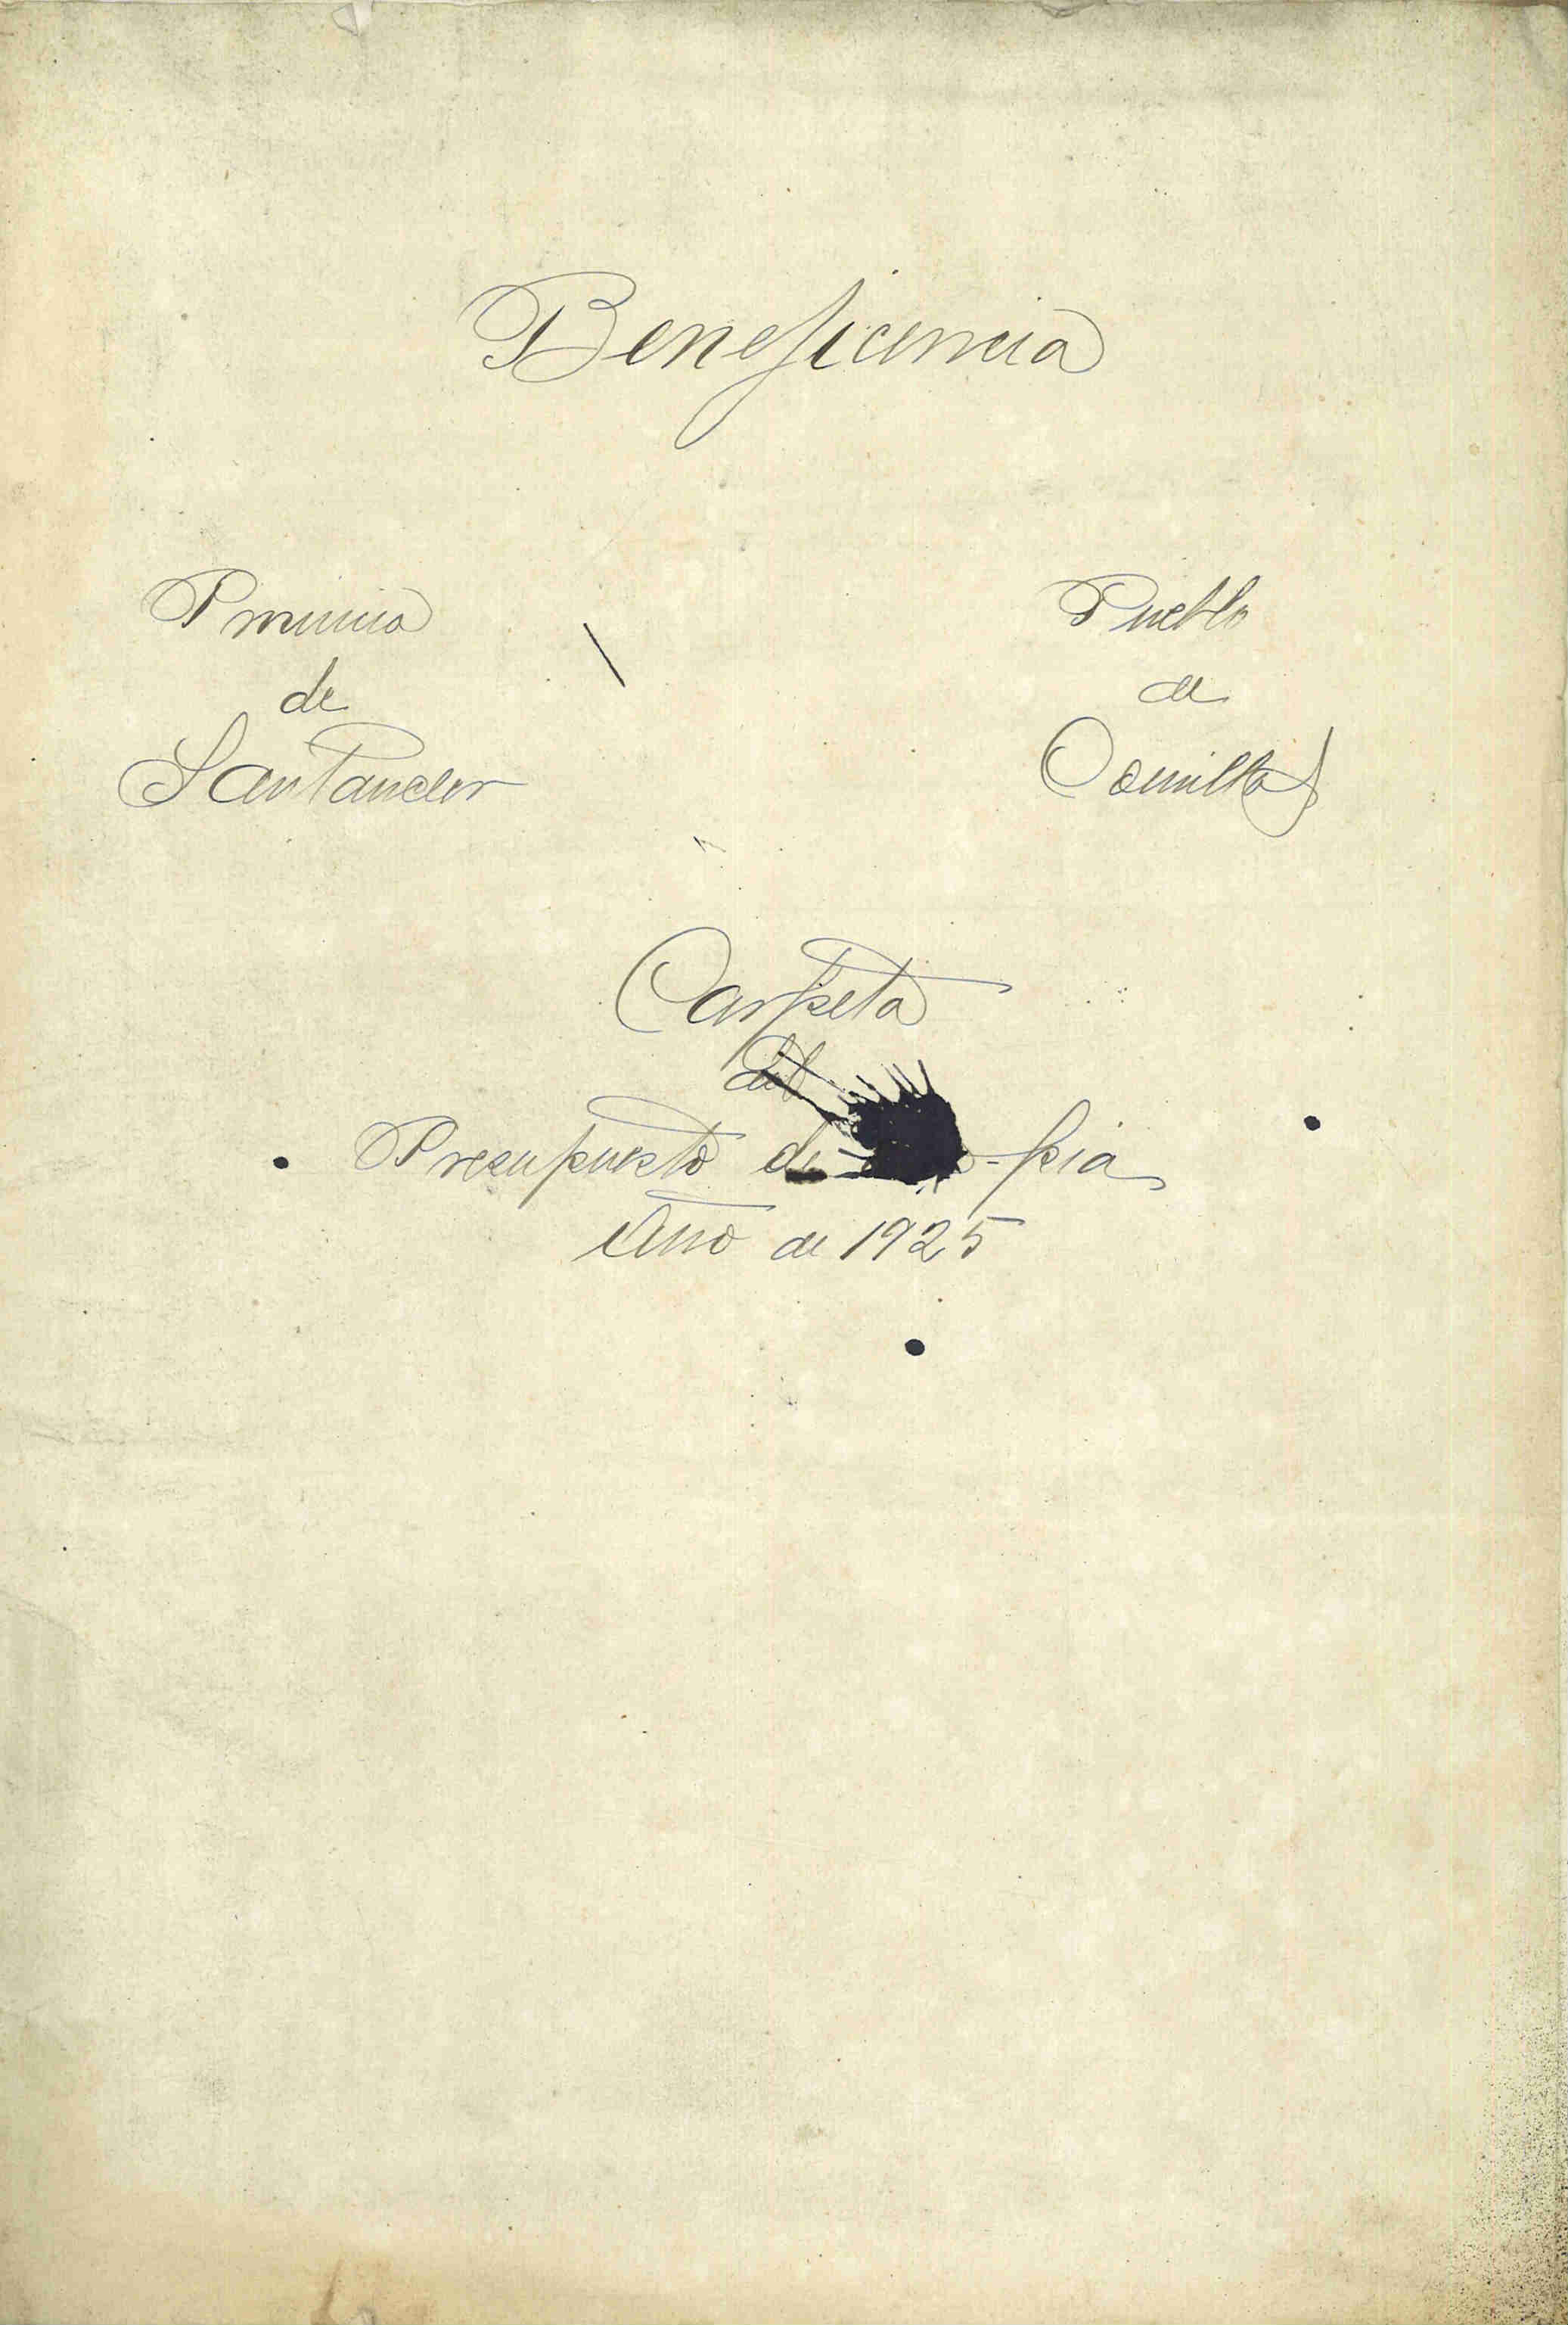 Beneficencia
Provincia
de
Santander
Pueblo
de
Comillas
Carpeta
del
Presupuesto de -pia
Año de 1925